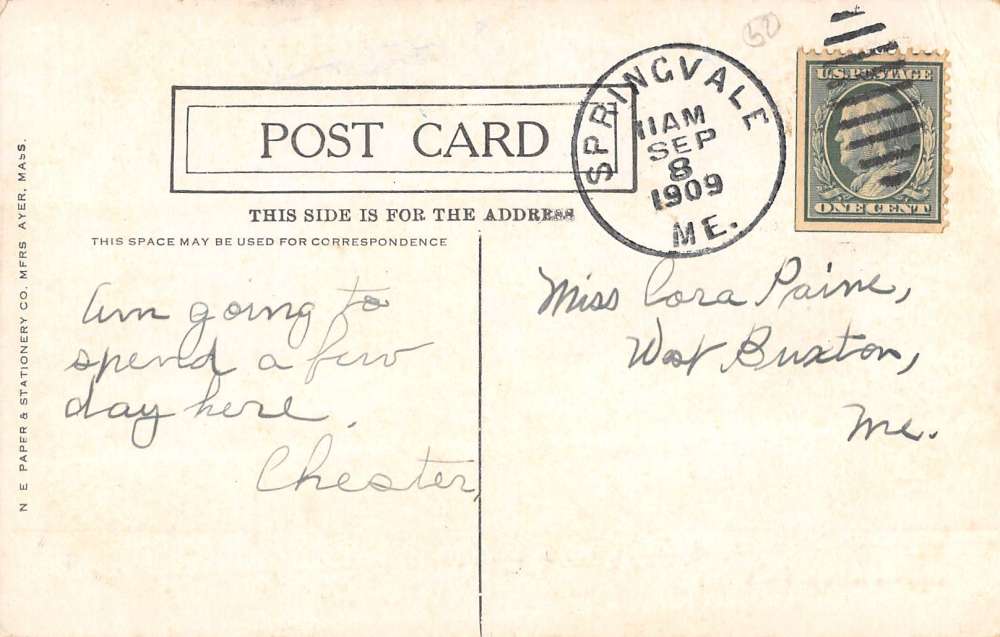 50
SPRINGVALE
11AM
SEP
8
1909
ME.
U.S. POSTAGE
ONE CENT
POST CARD
THIS SIDE IS FOR THE ADDRESS
THIS SPACE MAY BE USED FOR CORRESPONDENCE
N E PAPER & STATIONERY CO. MFRS AYER, MASS.
Am going to
spend a few
day here.
Chester,
Miss Cora Paine,
West Buxton,
Me.